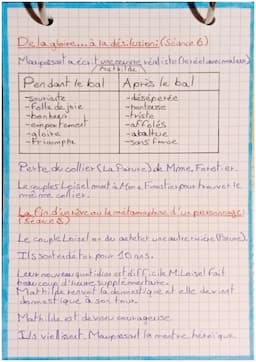 De la gloire... à la désillusion: (Séance 6)
Maupassant a écrit une œuvre réaliste (
Mathilde
Pendant le bal
Après le bal
-souriante
-désespérée
-folle de joie
-honteuse
-bonheur
-triste
-emportement
-affolés
-gloire
-abattue
-triomphe
-sans force
Perte du collier (La Parure) de Mme. Forestier.
Le couple Loisel ment à Mme Forestier pour trouver le
même collier.
La fin d'un rêve ou la métamorphose d'un personnage:
(séance 8)
Le couple Loisel a dû acheter une autre rivière (Parure).
Ils sont endettés pour 10 ans.
Leur nouveau quotidien est difficile M. Loisel fait
beaucoup d'heure supplémentaire.
Mathilde renvoit la domestique et elle devient
domestique à son tour.
Mathilde est devenu courageuse
Ils vieillissent, Maupassant la montre héroïque.